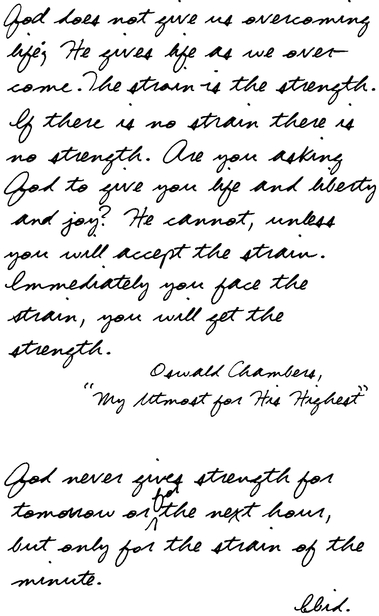 God does not give us overcoming
life; He gives life as we over-
come. The strain is the strength.
If there is no strain there is
no strength. Are you asking
God to give you life and liberty
and joy? He cannot, unless
you will accept the strain.
Immediately you face the
strain, you will get the
strength.
Oswald Chambers,
"My Utmost for His Highest"
God never gives strength for
tomorrow or for the next hour,
but only for the strain of the
minute.
Ibid.